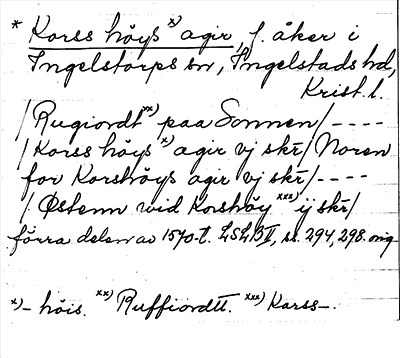 * Korss höys x) agir, f. åker i
Ingelstorps sn, Ingelstads hd,
Krist. l.
/Rugiordt xx) paa Sonnen/----
/Korss höys x) agir vj skr/ Noren
for Korshöys agir vj skr/----
/Østenn wid Korshöy xxx) ij skr/
förra delen av 1570-t. LSLB II, ss. 294, 298. orig
x)- höis. xx) Ruffiordtt. xxx) Karss-.